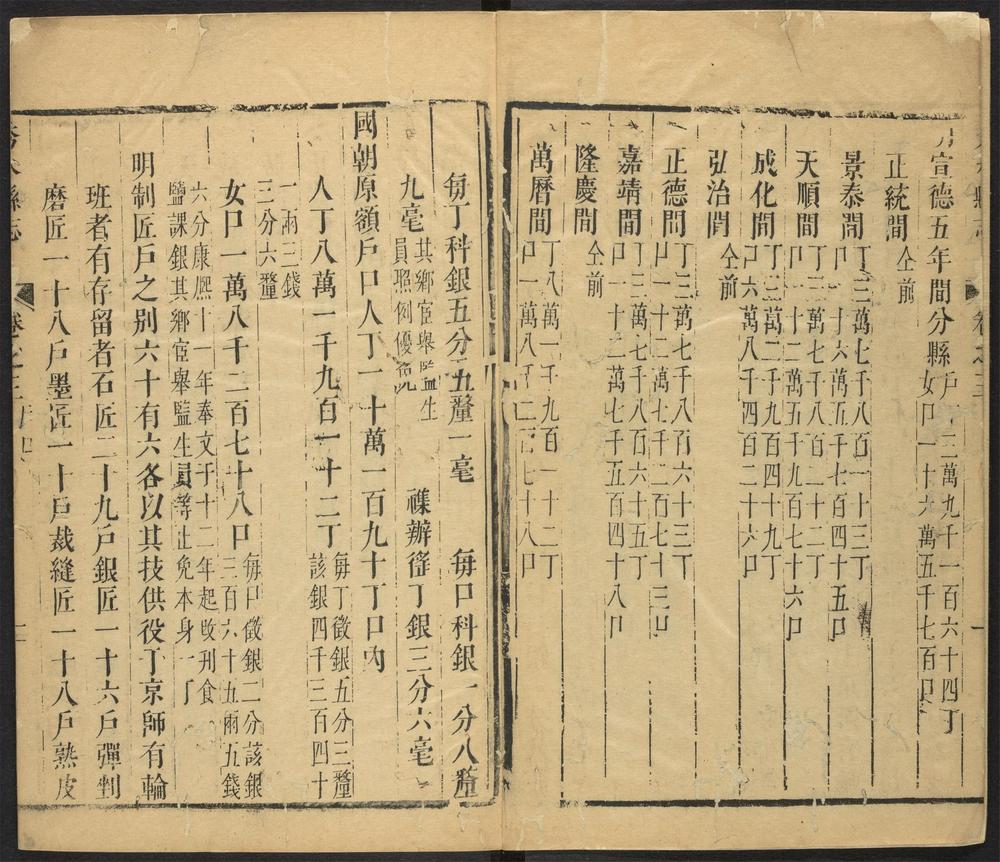 宣德五年間分縣戶三萬九千一百六十四丁
女口一十六萬五千七百口
正統間仝前
景泰間丁三萬七千八百一十三丁
口一十六萬五千七百四十五口
天順間丁三萬七千八百二十二丁
口一十二萬五千九百七十六口
成化間丁三萬二千九百四十九丁
口六萬八千四百二十六口
弘治間仝前
正德間丁三萬七千八百六十三丁
口一十二萬七千二百七十三口
嘉靖間丁三萬七千八百六十五丁
口一十二萬七千五百四十八口
隆慶間仝前
萬曆間丁八萬一千九百一十二丁
口一萬八千二百七十八口
每丁科銀五分五釐一毫 每口科銀一分八釐
九毫其鄉宦舉監生
員照例優免 襍辦徭丁銀三分六毫
國朝原額戶口人丁一十萬一百九十丁口內
人丁八萬一千九百一十二丁每丁徵銀五分三釐
該銀四千三百四十
一兩三錢
三分六釐
女口一萬八千二百七十八口每口徵銀二分該銀
三百六十五兩五錢
六分康熈十一年奉文于十二年起改刑食
鹽課銀其鄉宦舉監生員等止免本身一丁
明制匠戶之别六十有六各以其技供役丁京師有輪
班者有存留者石匠二十九戶銀匠一十六戶彈
磨匠一十八戶墨匠一十戶裁縫匠一十八戶熟皮
縣志
卷之三